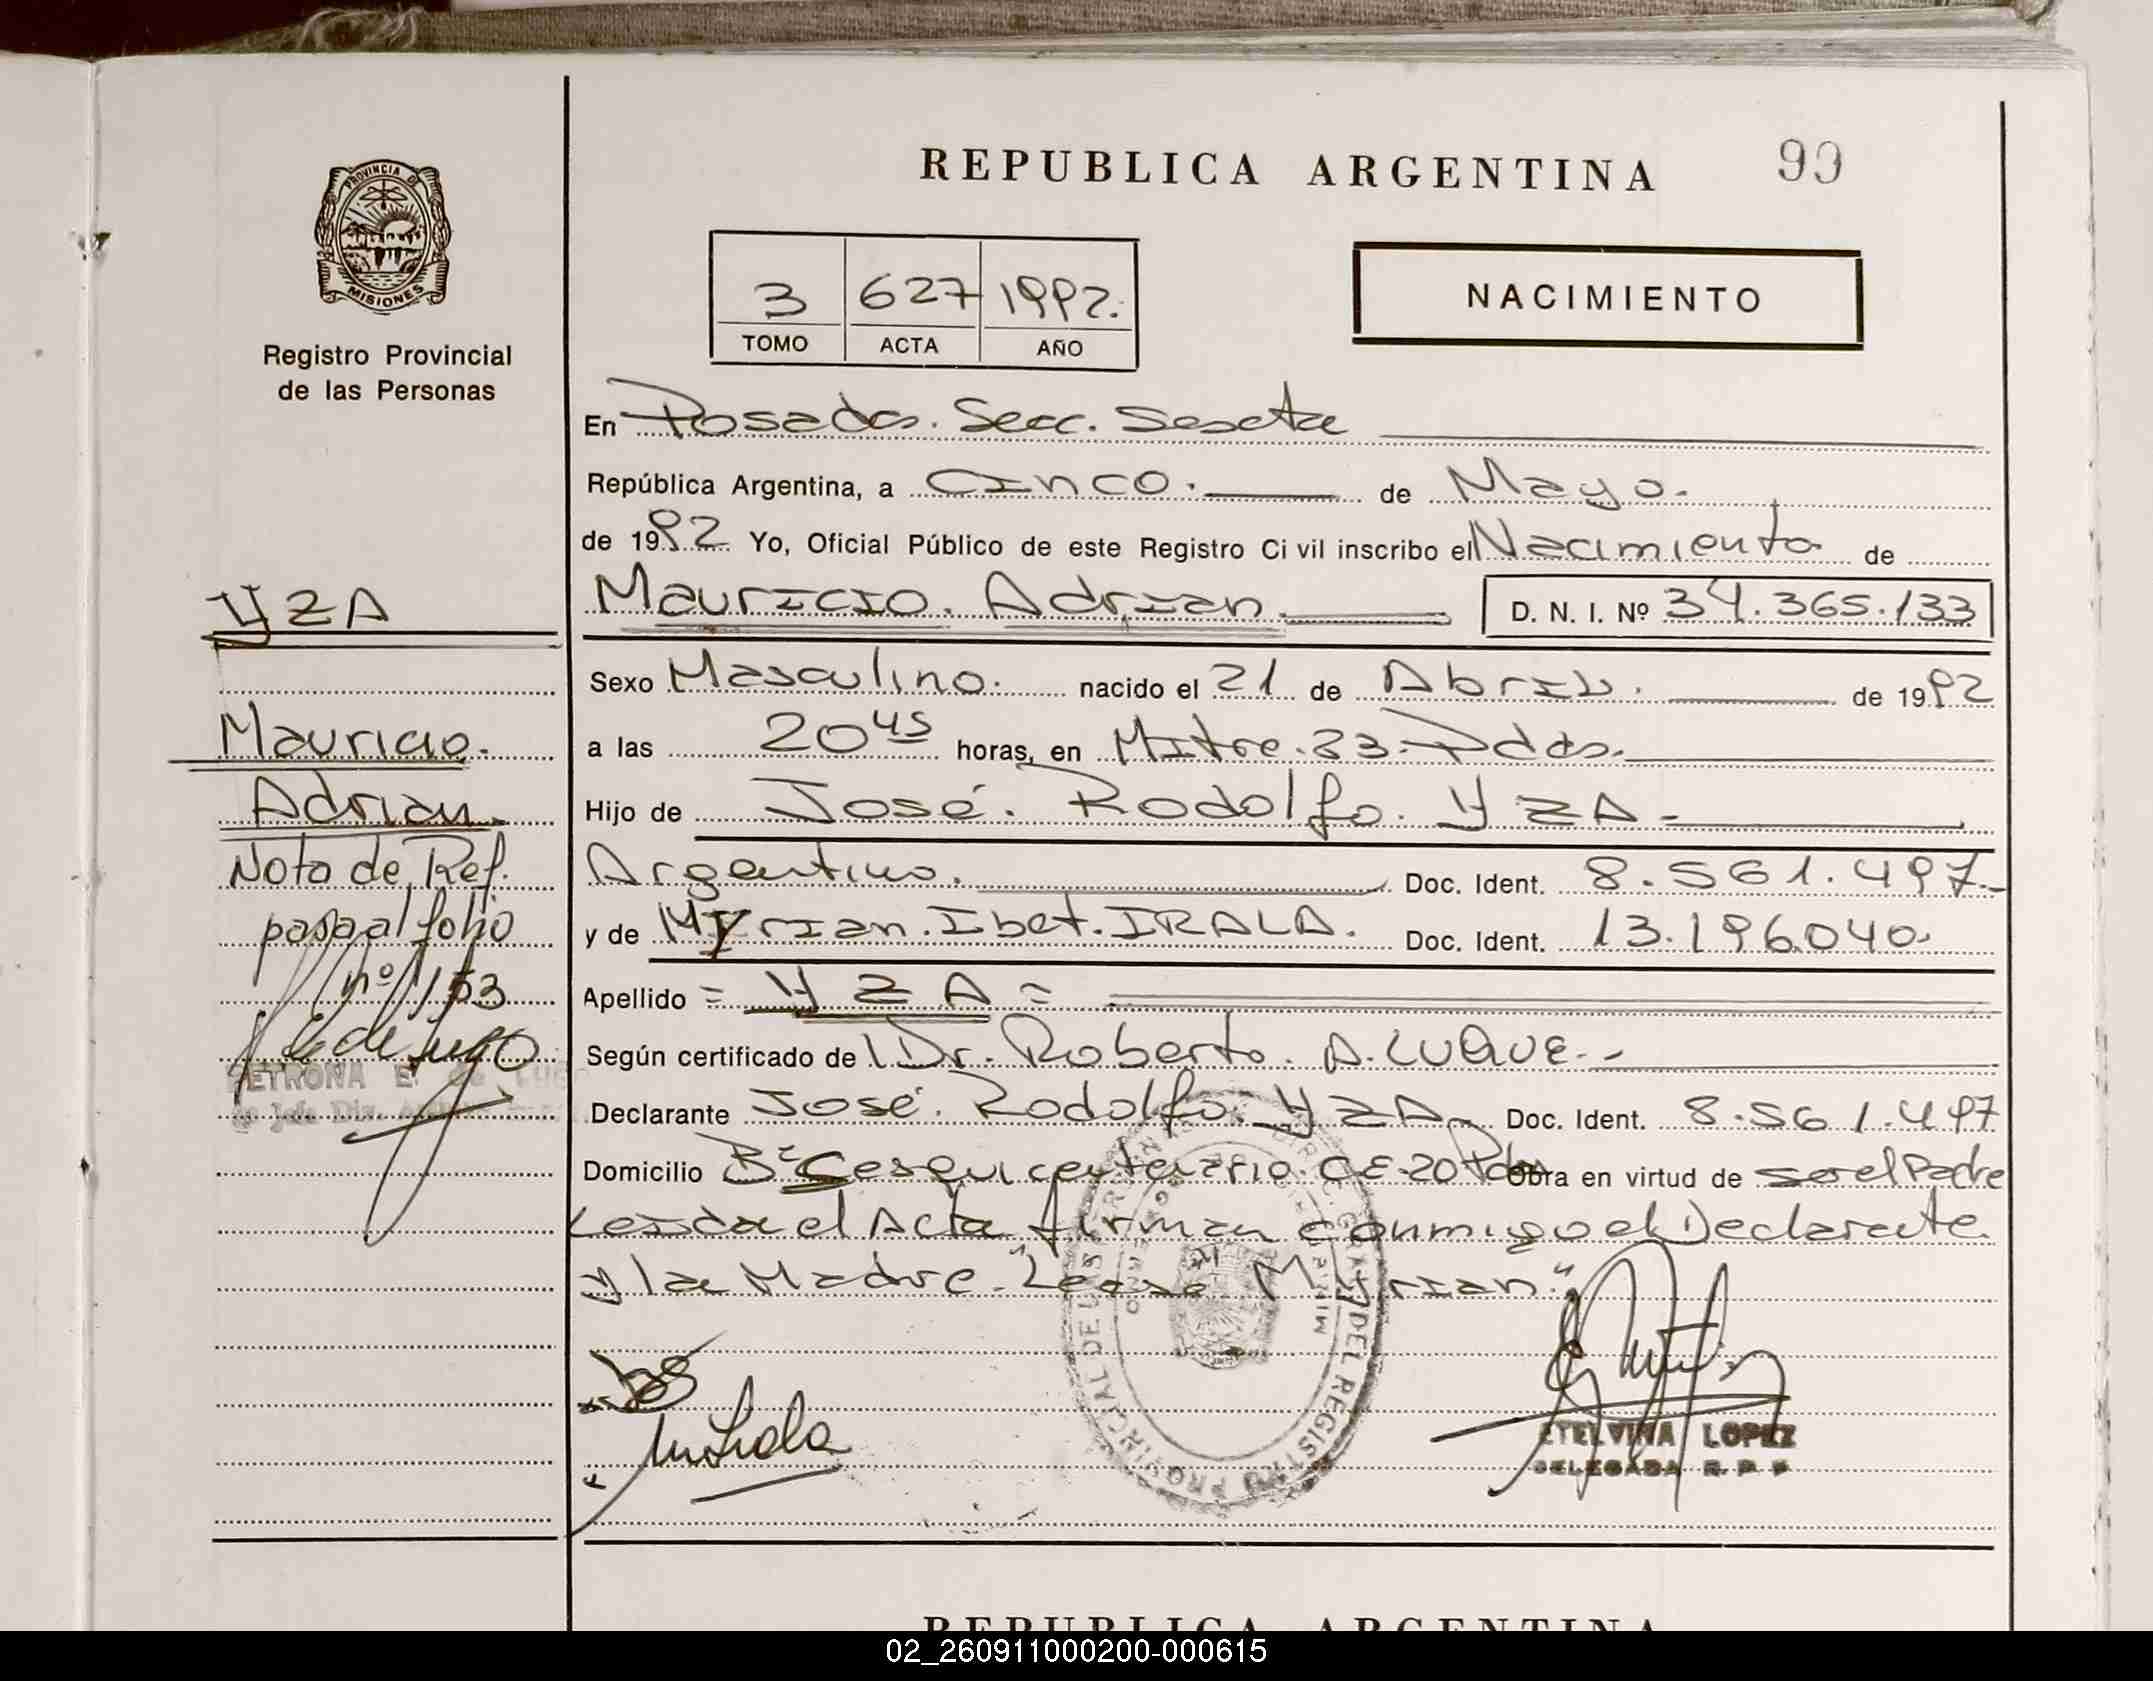 REPUBLICA ARGENTINA 99
PROVINCIA DE
MISIONES
Registro Provincial
de las Personas
3 627 1992.
TOMO ACTA AÑO
NACIMIENTO
En Posadas. Secc. Seseta
República Argentina, a Cinco. de Mayo.
de 1992 Yo, Oficial Público de este Registro Civil inscribo el Nacimiento de
Mauricio. Adrian. D. N. I. Nº 34.365.133
Sexo Masculino. nacido el 21 de Abril. de 1992
a las 20 45 horas, en Mitre. 33. Pdas.
Hijo de José. Rodolfo. YZA
Argentino. Doc. Ident. 8.561.497
y de Myrian. Ibet. IRALA. Doc. Ident. 13.196.040.
Apellido = YZA =
Según certificado de Dr. Roberto. A. LUQUE.
Declarante José. Rodolfo. YZA Doc. Ident. 8.561.497
Domicilio Bº Sesquicentenario. CE-20 Pdas Obra en virtud de ser el Padre
Leida el Acta firman conmigo el Declarante
y la Madre. "Lease Myrian"
YZA
Mauricio.
Adrian.
Nota de Ref.
pasa al folio
nº 153
PETRONA E. de LUGO
ETELVINA LOPEZ
DELEGADA R. P. P.
REPUBLICA ARGENTINA
02_260911000200-000615